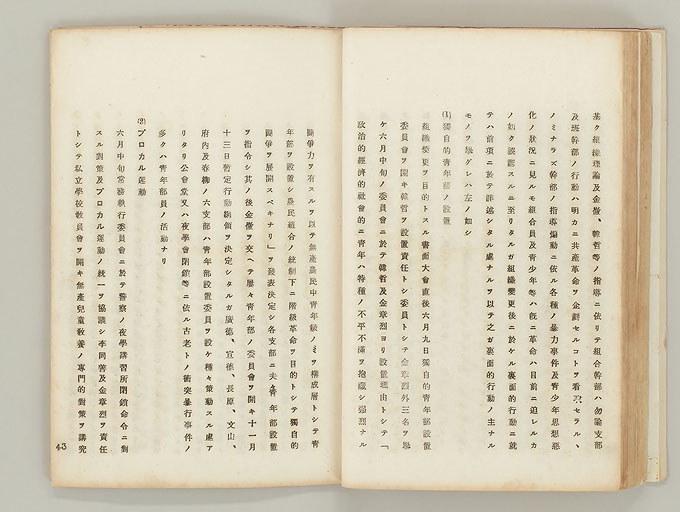 基ク組織理論及金徽、韓哲等ノ指導ニ依リテ組合幹部ハ勿論支部
及班幹部ノ行動ハ明カニ共產革命ヲ企劃セルコトヲ看取セラル、
ノミナラズ幹部ノ指導煽動ニ依ル各種ノ暴力事件及靑少年思想惡
化ノ狀況ニ見ルモ組合員及靑少年等ハ旣ニ革命ハ目前ニ迫レルカ
ノ如ク誤信スルニ至リタルガ組織變更後ニ於ケル裏面的行動ニ就
テハ前項ニ於テ詳述シタル處ナルヲ以テ之ガ裏面的行動ノ主ナル
モノヲ擧グレハ左ノ如シ
(1) 獨自的靑年部ノ設置
組織變更ヲ目的トスル書面大會直後六月九日獨自的靑年部設置
委員會ヲ開キ韓哲ヲ設置責任トシ委員トシテ金章烈外三名ヲ擧
ケ六月中旬ノ委員會ニ於テ韓哲及金章烈ヨリ設置理由トシテ「
政治的經濟的社會的ニ靑年ハ特種ノ不平不滿ヲ抱藏シ强烈ナル
鬪爭力ヲ有スルヲ以テ無產農民中靑年級ノミヲ構成層トシテ靑
年部ヲ設置シ農民組合ノ統制下ニ階級革命ヲ目的トシテ獨自的
鬪爭ヲ展開スベキナリ」ヲ發表決定シ各支部ニ夫々靑年部設置
ヲ指令シ其ノ後金徽ヲ交ヘテ屢々靑年部ノ委員會ヲ開キ十一月
十三日暫定行動綱領ヲ決定シタルガ廣德、宣德、長原、文山、
府內及春柳ノ六支部ハ靑年部設置委員ヲ設ケ種々策動スル處ア
リタリ公會堂又ハ夜學會閉鎖等ニ依ル古老トノ衝突暴行事件ノ
多クハ靑年部員ノ活動ナリ
(2) プロカル運動
六月中旬常務執行委員會ニ於テ警察ノ夜學講習所閉鎖命令ニ對
スル對策及プロカル運動ノ統一ヲ協議シ李同善及金章烈ヲ責任
トシテ私立學校敎員會ヲ開キ無產兒童敎養ノ專門的對策ヲ講究
43